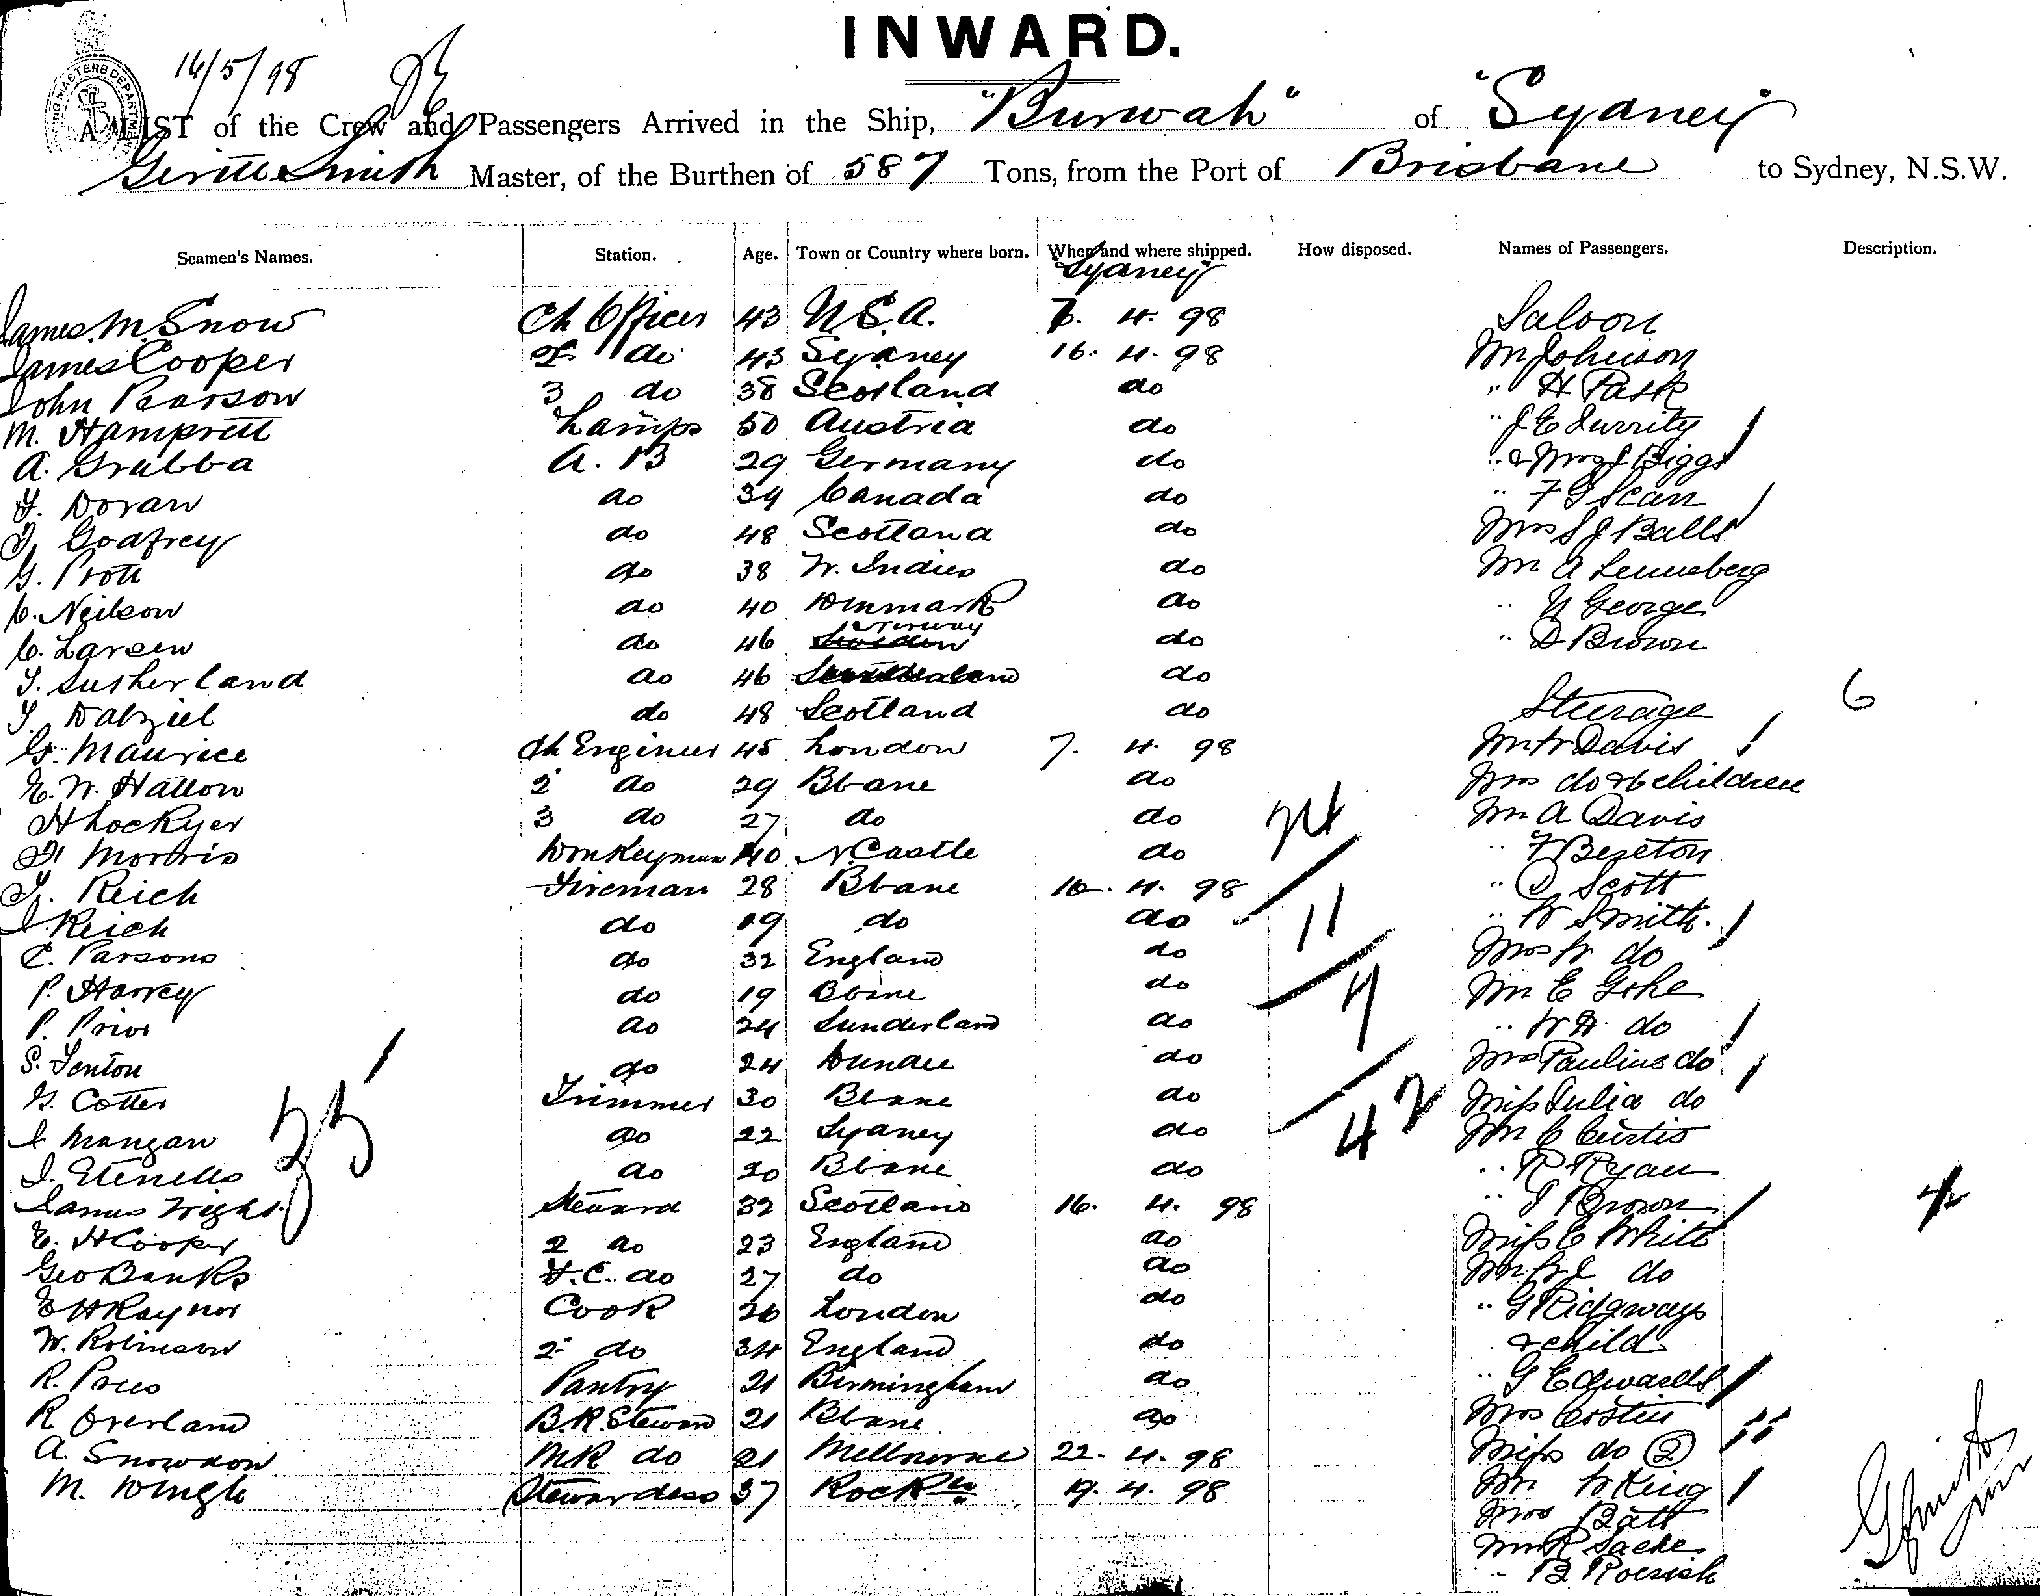 INWARD.
16/5/98
A LIST of the Crew and Passengers Arrived in the Ship, "Burwah" of "Sydney
Smith Master, of the Burthen of 587 Tons, from the Port of Brisbane to Sydney, N.S.W.
Seamen's Names. Station. Age. Town or Country where born. When and where shipped. How disposed. Names of Passengers. Description.
Sydney
James. M. Snow Ch Officer 43 U.S.A. 7. 4. 98 Saloon
James Cooper 2 do 43 Sydney 16. 4. 98 Mr Johnson
John Pearson 3 do 38 Scotland do " H Pask
M. Lamps 50 Austria do " J E
A. Grabba A. B 29 Germany do " & Mrs J Biggs
Doran do 39 Canada do " F G Scarr
Godfrey do 48 Scotland do Mrs S J Balls
G. Prott do 38 W. Indies do Mr A Lenneberg
C. Neilson do 40 Denmark do " George
C. Larsen do 46 Norway do " D Brown
Sutherland do 46 do
Dalziel do 48 Scotland do Steerage 6
G. Maurice Ch Engineer 45 London 7. 4. 98 Mr W Davis
E. W. Hatton 2 do 29 Bbane do Mrs do & 6 children
H Lockyer 3 do 27 do do 24 Mr A Davis
Morris Donkeyman 40 N. Castle do " F Bereton
Reich Fireman 28 Bbane 16. 4. 98 " Scott
J Reich do 19 do do 11 " W Smith.
C. Parsons do 32 England do Mrs W do
P. Harvey do 19 Bbane do 7 Mr E Goke
P. Prior do 24 Sunderland do " W H do
S. Fenton do 24 Dundee do Mrs Pauline do
G. Cotter Trimmer 30 Bbane do 42 Miss Julia do
J Mangan 35 do 22 Sydney do Mr C Curtis
J. do 20 Bbane do " R Ryan
James Wright Steward 32 Scotland 16. 4. 98 " J Brown
E. H Cooper 2 do 23 England do Miss E White
Geo Banks F.C. do 27 do do Mr W J do
E H Raynor Cook 26 London do " G Ridgways
W. Robinson 2 do 34 England do & child
R. Pantry 21 Birmingham do " G Edwards
R Overland B.R. Steward 21 Bbane do Mrs Costin
A. Snowdon M R do 21 Melbourne 22. 4. 98 Miss do (2)
M. Dingle Stewardess 37 Rock 19. 4. 98 Mr W King
Mrs Batt
Mr R Sache
" B